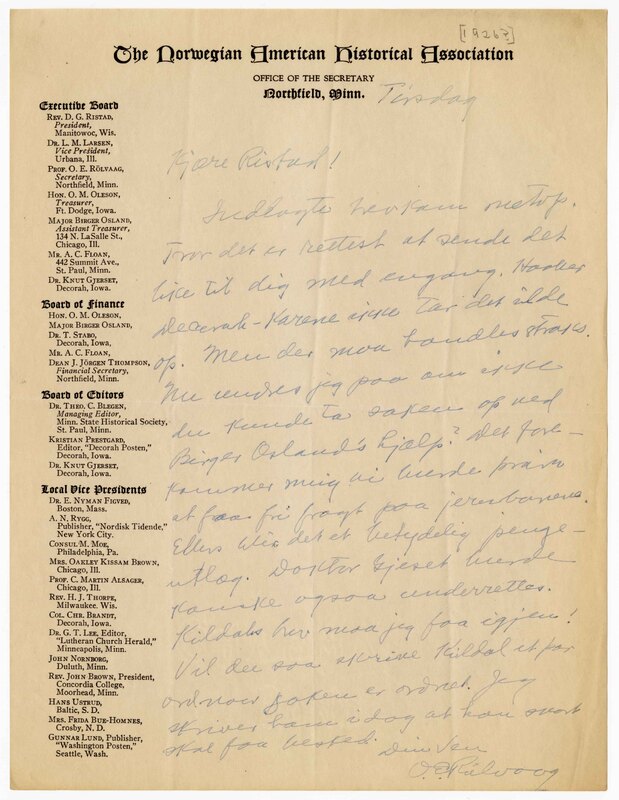 [1926?]
The Norwegian American Historical Association
OFFICE OF THE SECRETARY
Northfield, Minn.
Executive Board
REV. D. G. RISTAD,
President,
Manitowoc, Wis.
DR. L. M. LARSEN,
Vice President,
Urbana, Ill.
PROF. O. E. RÖLVAAG,
Secretary,
Northfield, Minn.
HON. O. M. OLESON,
Treasurer,
Ft. Dodge, Iowa.
MAJOR BIRGER OSLAND,
Assistant Treasurer,
134 N. LaSalle St.,
Chicago, Ill.
MR. A. C. FLOAN,
442 Summit Ave.,
St. Paul, Minn.
DR. KNUT GJERSET,
Decorah, Iowa.
Board of Finance
HON. O. M. OLESON,
MAJOR BIRGER OSLAND,
DR. T. STABO,
Decorah, Iowa.
MR. A. C. FLOAN,
DEAN J. JÖRGEN THOMPSON,
Financial Secretary,
Northfield, Minn.
Board of Editors
DR. THEO. C. BLEGEN,
Managing Editor,
Minn. State Historical Society,
St. Paul, Minn.
KRISTIAN PRESTGARD,
Editor, "Decorah Posten,"
Decorah, Iowa.
DR. KNUT GJERSET,
Decorah, Iowa.
Local Vice Presidents
DR. E. NYMAN FIGVED,
Boston, Mass.
A. N. RYGG,
Publisher, "Nordisk Tidende,"
New York City.
CONSUL M. MOE,
Philadelphia, Pa.
MRS. OAKLEY KISSAM BROWN,
Chicago, Ill.
PROF. C. MARTIN ALSAGER,
Chicago, Ill.
REV. H. J. THORPE,
Milwaukee. Wis.
COL. CHR. BRANDT,
Decorah, Iowa.
DR. G. T. LEE, Editor,
"Lutheran Church Herald,"
Minneapolis, Minn.
JOHN NORNBORG,
Duluth, Minn.
REV. JOHN BROWN, President,
Concordia College,
Moorhead, Minn.
HANS USTRUD,
Baltic, S. D.
MRS. FRIDA BUE-HOMNES,
Crosby, N. D.
GUNNAR LUND, Publisher,
"Washington Posten,"
Seattle, Wash.
Tirsdag
Kjære Ristad!
Indlagte brev kom netop.
Tror det er rettest at sende det
like til dig med engang. Haaber
Decorah-Karene ikke tar det ilde
op. Men der maa handles straks.
Nu undres jeg paa om ikke
du kunde ta saken op ved
Birger Osland's hjælp? Det fore-
kommer mig vi burde prøve
at faa fri fragt paa jernbanene.
Ellers blir det et betydelig penge-
utlæg. Doktor Gjerset burde
kanske ogsaa underrettes.
Kildals brev maa jeg faa igjen!
Vil du saa skrive Kildal et par
ord naar saken er ordnet. Jeg
skriver ham idag at han snart
skal faa besked. Din Ven
O. E. Rölvaag